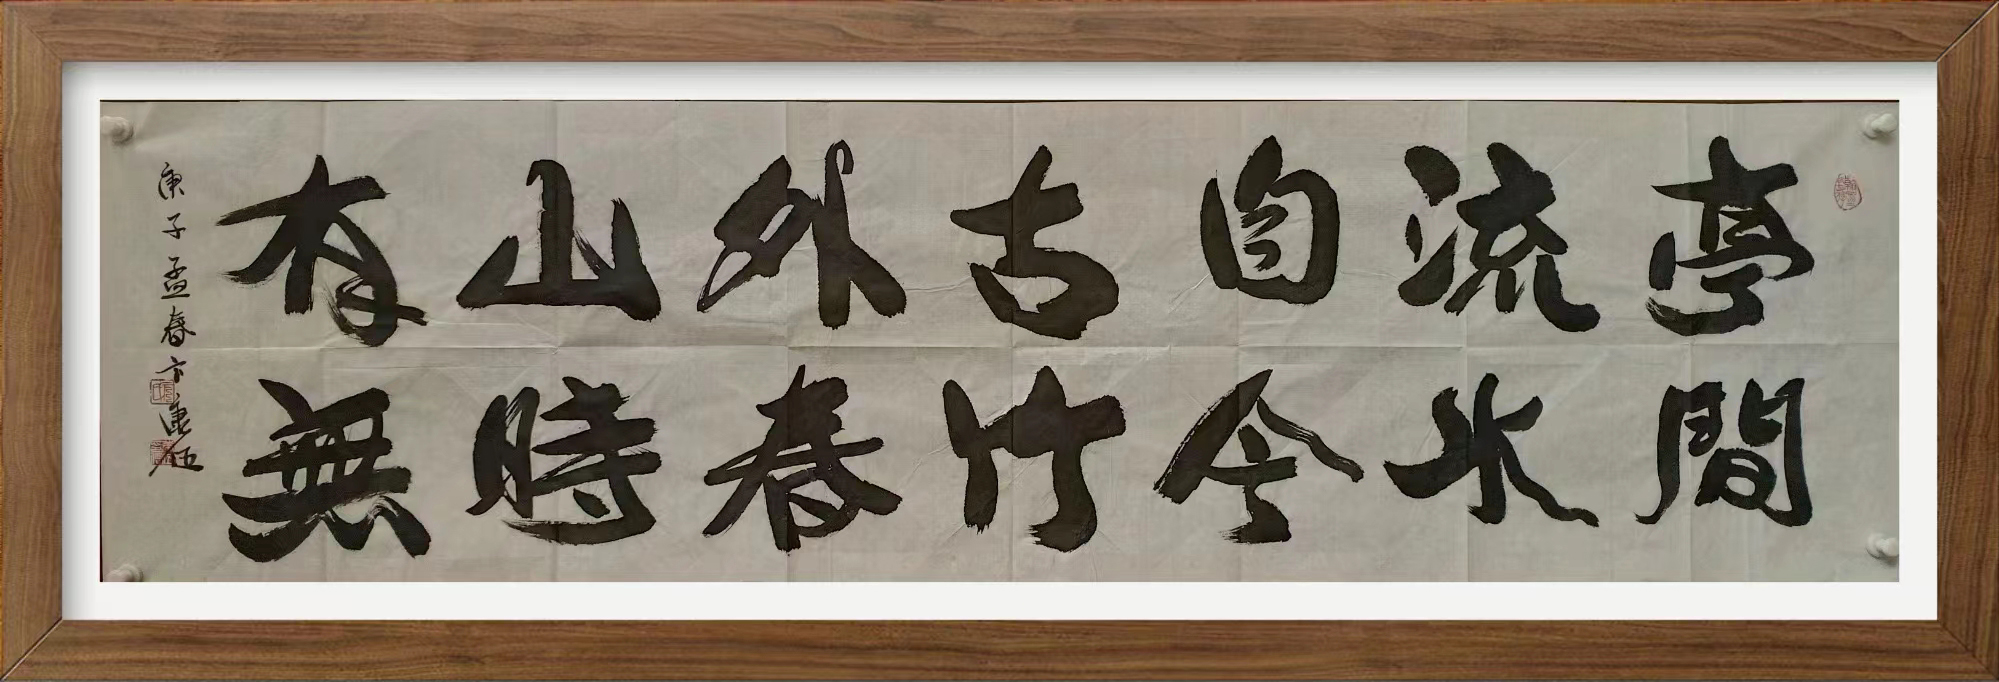 亭間
流水
自今
古竹
外春
山時
有無
庚子孟春卞康伍